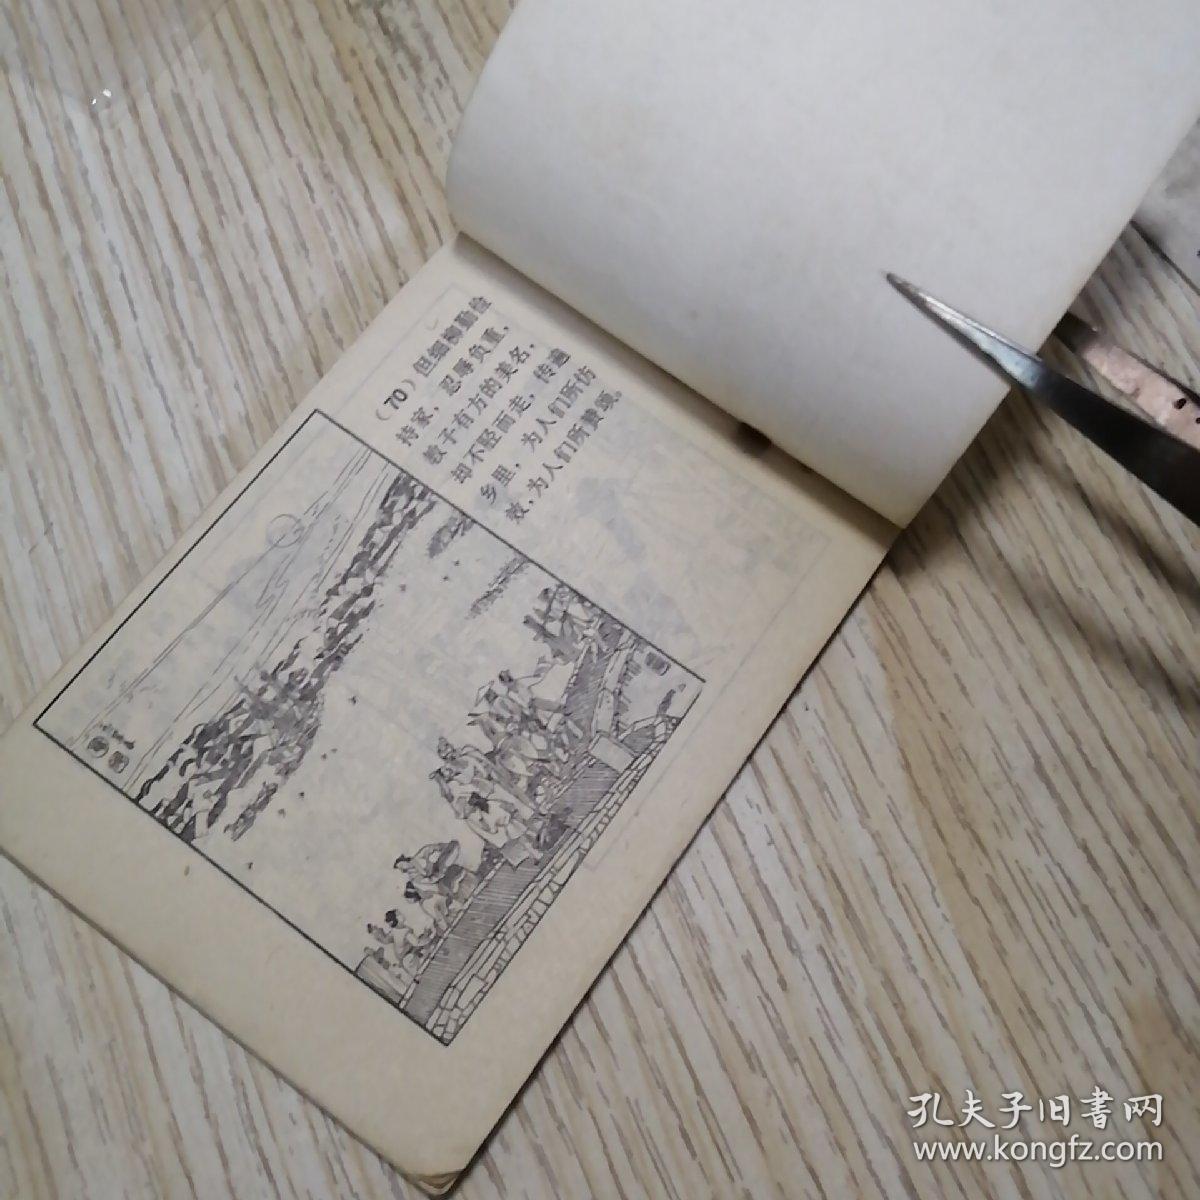 （70）但细柳勤俭
持家，忍辱负重，
教子有方的美名，
却不胫而走，传遍
乡里，为人们所仿
效，为人们所赞颂。
孔夫子旧書网
www.kongfz.com